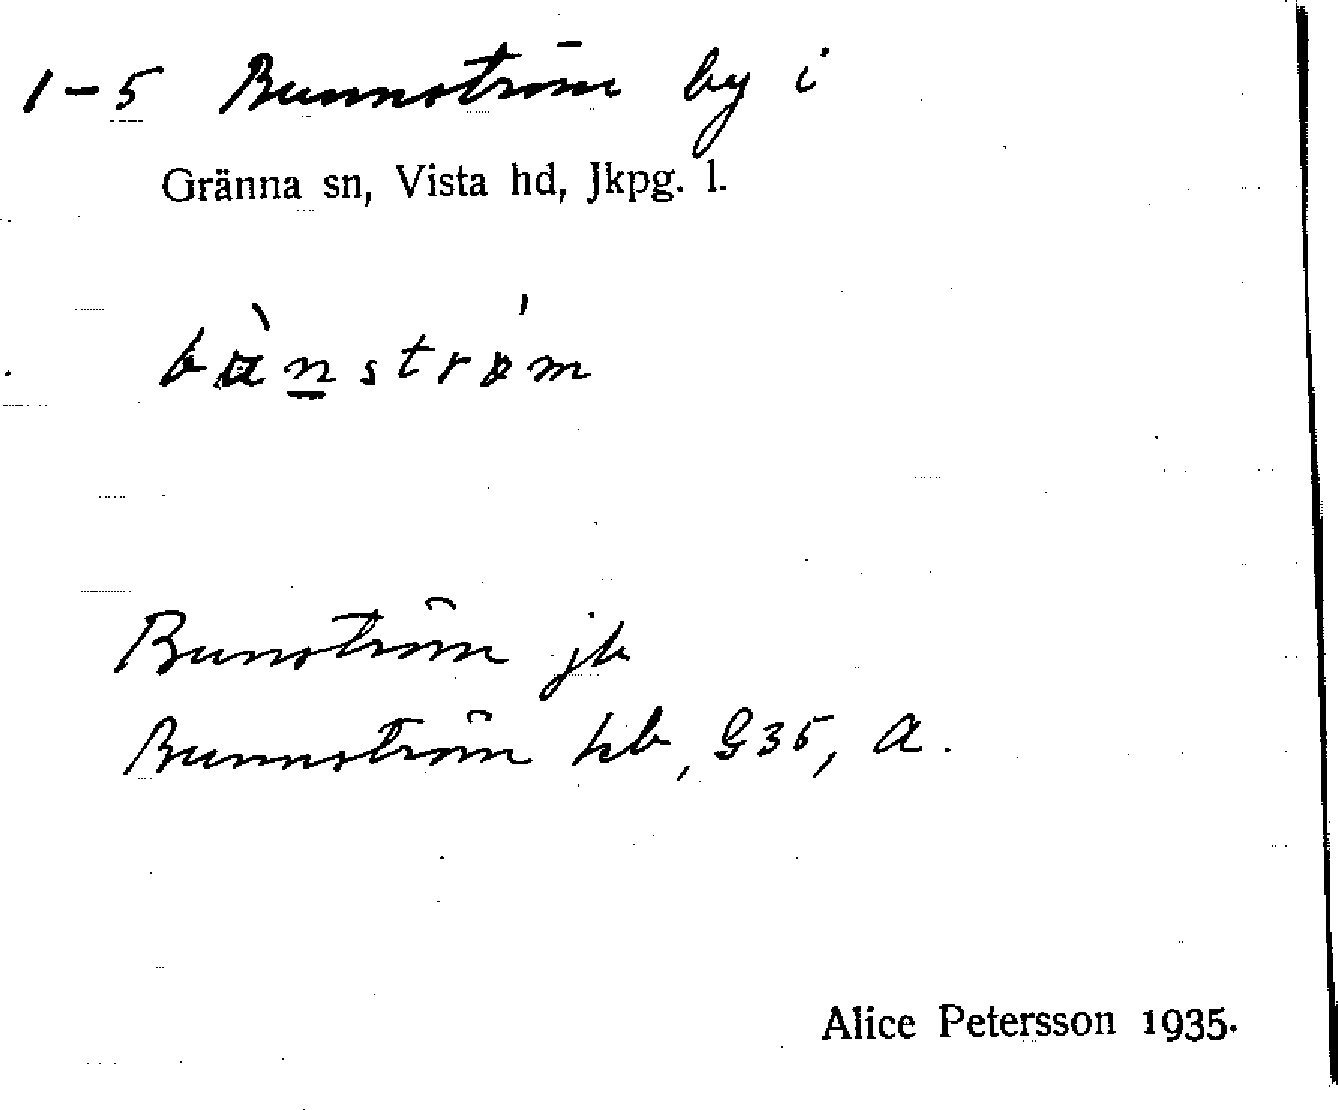 1-5 Bunnström by i
Gränna sn, Vista hd, Jkpg. l.
Bunström jb
Bunnström hb, G35, a.
Alice Petersson 1935.